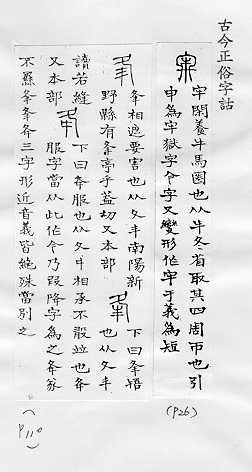 古今正俗字詁
牢閑養牛馬圈也从牛冬省取其四周帀也引
申為牢獄字今字又變形作牢于義為短
(P26)
夆相遮要害也从夂丯南陽新
野縣有夆亭乎蓋切又本部
下曰夆啎
也从夂丰
讀若縫
又本部
下曰夅服也从夂㐄相承不敢並也夅
服字當从此作今乃叚降字為之夅篆
三字形近音義皆絕殊當別之
(P110)